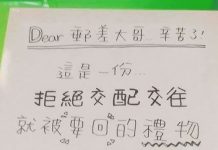 Dear 郵差大哥 辛苦了!
這是一份...
拒絕交配交往
就被要回的禮物